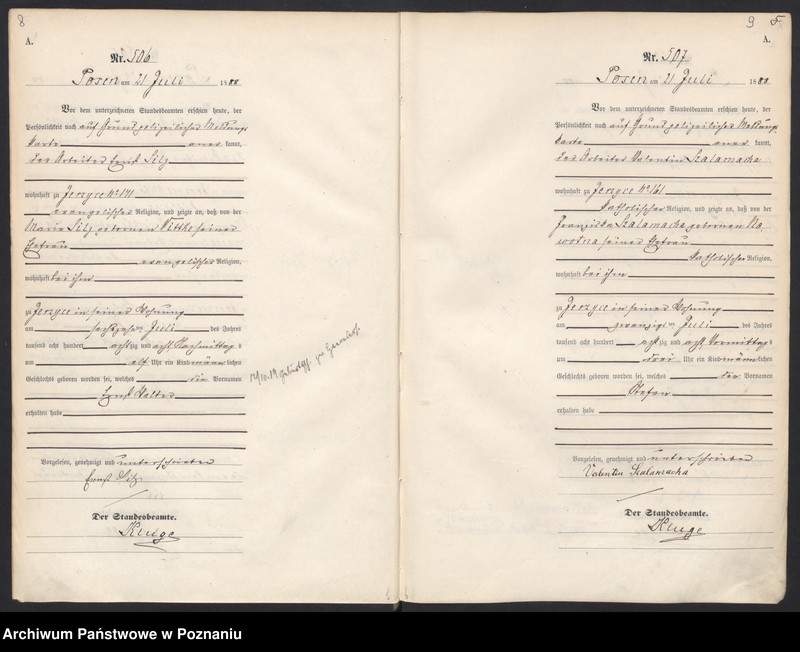 8
A.
Nr. 506
Posen am 21 Juli 1888
Vor dem unterzeichneten Standesbeamten erschien heute, der
Persönlichkeit nach auf Grund polizeilicher Meldungs
karte aner kannt,
der Arbeiter Ernst Silz
wohnhaft zu Jerzyce No 141
evangelischer Religion, und zeigte an, daß von der
Marie Silz gebornen Wittke seiner
Ehefrau
evangelischer Religion,
wohnhaft bei ihm
zu Jerzyce in seiner Wohnung
am sechszehnten Juli des Jahres
tausend acht hundert achtzig und acht Nachmittags
um elf Uhr ein Kind männlichen
Geschlechts geboren worden sei, welches die Vornamen
Ernst Walter
erhalten habe
Vorgelesen, genehmigt und unterschrieben
Ernst Silz
Der Standesbeamte.
Kluge
9
A.
Nr. 507
Posen am 21 Juli 1888
Vor dem unterzeichneten Standesbeamten erschien heute, der
Persönlichkeit nach auf Grund polizeilicher Meldungs
karte aner kannt,
der Arbeiter Valentin Szalamacha
wohnhaft zu Jerzyce No 161
katholischer Religion, und zeigte an, daß von der
Franziska Szalamacha gebornen Na
wotna seiner Ehefrau
katholischer Religion,
wohnhaft bei ihm
zu Jerzyce in seiner Wohnung
am zwanzigsten Juli des Jahres
tausend acht hundert achtzig und acht Vormittags
um drei Uhr ein Kind männlichen
Geschlechts geboren worden sei, welches den Vornamen
Stefan
erhalten habe
Vorgelesen, genehmigt und unterschrieben
Valentin Szalamacha
Der Standesbeamte.
Kluge
Archiwum Państwowe w Poznaniu